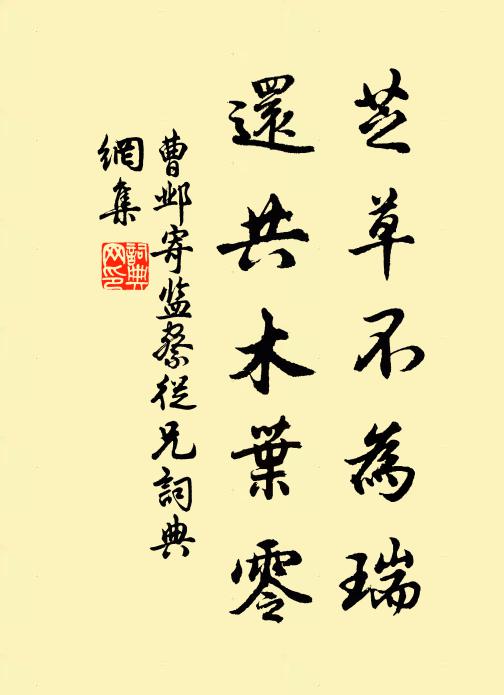 芝草不為瑞
還共木葉零
曹邺寄监察從兄詞典
網集
詞典网印